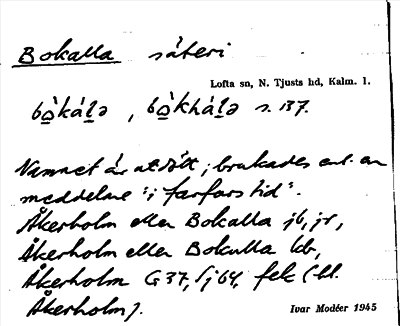 Bokalla säteri
Lofta sn, N. Tjusts hd, Kalm. l.
bò̱ká̱lə, bò̱khá̱lə s. 137.
Namnet är utdött; brukades enl. en
meddelare "i farfars tid".
Åkerholm eller Bokalla jb, jr,
Åkerholm eller Bokulla kb,
Åkerholm G 37, Sj 64, fek (bl.
Åkerholm).
Ivar Modéer 1945